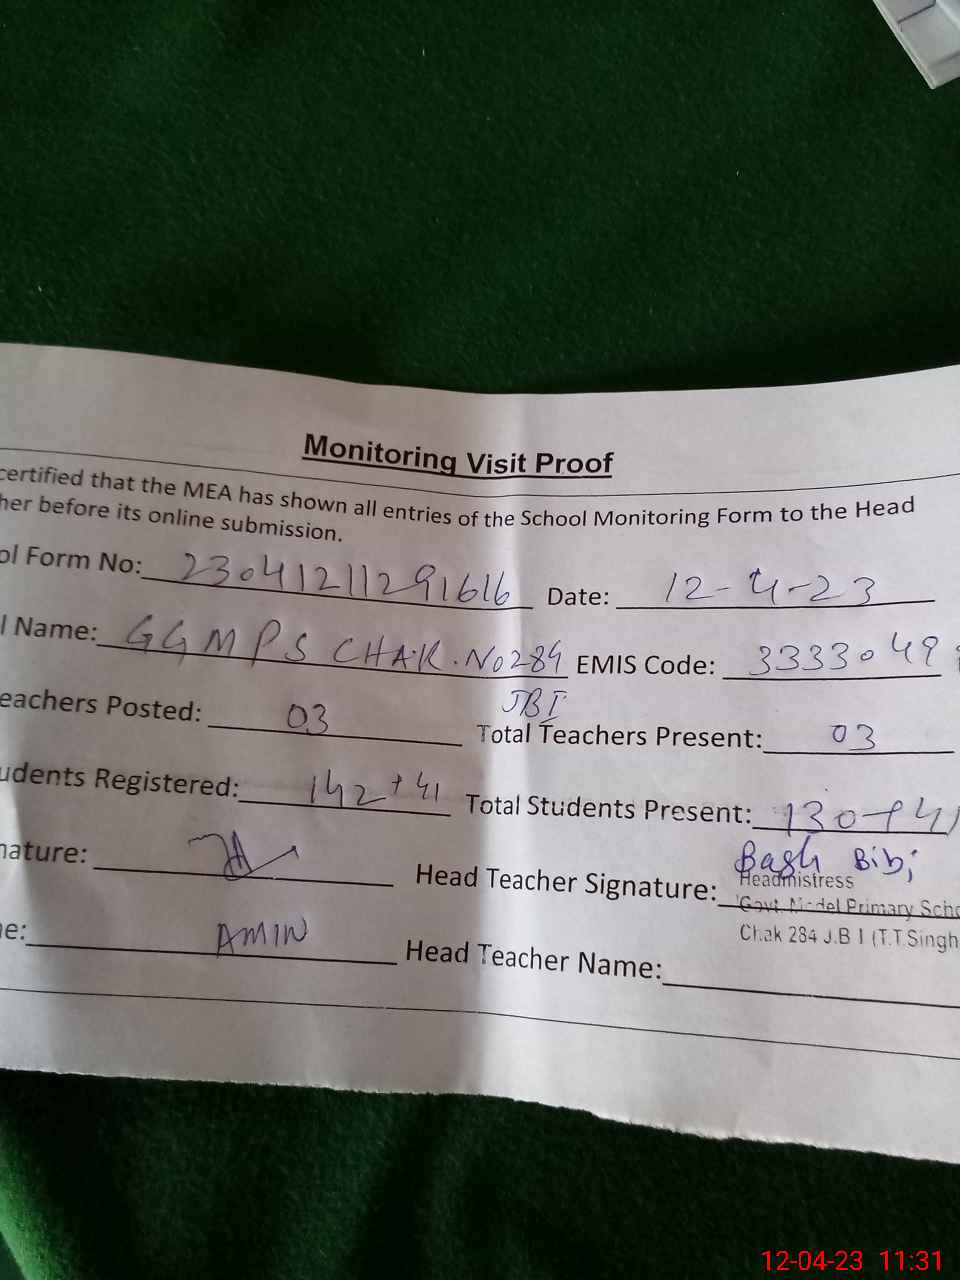 Monitoring Visit Proof
certified that the MEA has shown all entries of the School Monitoring Form to the Head
her before its online submission.
ol Form No: 2304121129 1616 Date: 12-4-23
l Name: GGMPS CHAK.No284 EMIS Code: 3333049
JBI
eachers Posted: 03 Total Teachers Present: 03
udents Registered: 142+41 Total Students Present: 130+41
nature: Head Teacher Signature: Bagh Bibi
Headmistress
Govt. Model Primary Scho
Chak 284 J.B I (T.T.Singh
e: AMIN Head Teacher Name:
12-04-23 11:31